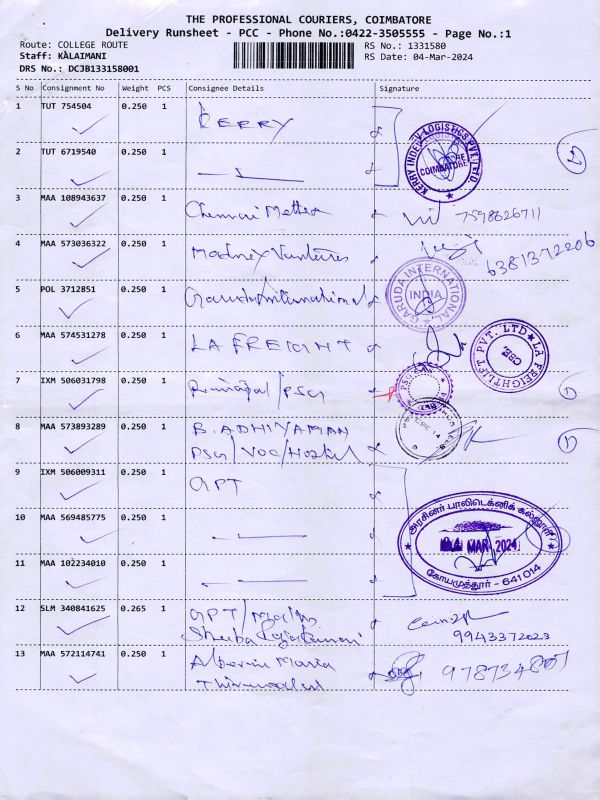 THE PROFESSIONAL COURIERS, COIMBATORE
Delivery Runsheet - PCC - Phone No.:0422-3505555 - Page No.:1
Route: COLLEGE ROUTE RS No.: 1331580
Staff: KALAIMANI RS Date: 04-Mar-2024
DRS No.: DCJB133158001
S No Consignment No Weight PCS Consignee Details Signature
1 TUT 754504 0.250 1 CERRY
KERRY INDEV LOGISTICS PVT. LTD
COIMBATORE
2 TUT 6719540 0.250 1
2
3 MAA 108943637 0.250 1 Chennai 7598626711
4 MAA 573036322 0.250 1 Madnex Ventures 6381372206
5 POL 3712851 0.250 1 Garuda International
GARUDA INTERNATIONAL
INDIA
6 MAA 574531278 0.250 1 LA FREIGHT
LA FREIGHTLIFT PVT. LTD
CBE
7 IXM 506031798 0.250 1 /PSG
1
8 MAA 573893289 0.250 1 B. ADHIYAMAN
PSG/VOC/Hostel
1
9 IXM 506009311 0.250 1 GPT
10 MAA 569485775 0.250 1
அரசினர் பாலிடெக்னிக் கல்லூரி
MAR 2024
கோயமுத்தூர் - 641 014
11 MAA 102234010 0.250 1
12 SLM 340841625 0.265 1 GPT/
Sheeba
9943372023
13 MAA 572114741 0.250 1 Maria